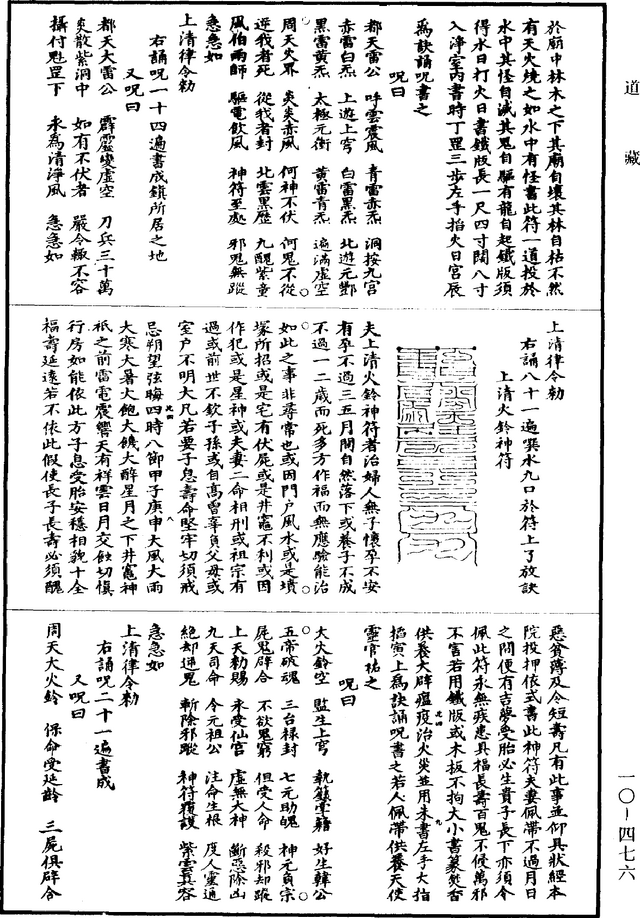 道藏
於廟中林木之下其廟自壞其林自枯不然
有天火燒之如水中有怪書此符一道投於
水中其怪自滅其鬼自驅有龍自起鐵版須
得水日打火日書鐵版長一尺四寸闊八寸
入淨室內書時丁罡三步左手掐火日宮辰
為訣誦呪書之
呪曰
都天雷公 呼雲震風 青雷赤炁 洞按九宮
赤雷白炁 上遊上宮 白雷黑炁 北遊元酆
黑雷黃炁 太極元衡 黃雷青炁 遍滿虛空
周天火界 炎炎赤風 何神不伏 何鬼不從
逆我者死 從我者封 北雲黑壓 九醜紫童
風伯雨師 驅電歙風 神符至處 邪鬼無蹤
急急如
上清律令勑
右誦呪一十四遍書成鎮所居之地
又呪曰
都天大雷公 霹靂變虛空 刀兵三十萬
炎散紫洞中 如有不伏者 嚴令輙不容
攝付魁罡下 永為清淨風 急急如
上清律令勑
右誦八十一遍噀水九口於符上了放訣
上清火鈴神符
夫上清火鈴神符者治婦人無子懷孕不安
有孕不過三五月間自然落下或養子不成
不過一二歲而死多方作福而無應驗能治
如此之事非尋常也或因門戶風水或是墳
塚所招或是宅有伏屍或是井竈不利或因
作犯或是星神或夫妻二命相刑或祖宗有
過或前世不欽子孫或自高曾辜負父母或
室戶不明大凡若要子息壽命堅牢切須戒
忌朔望弦晦四時八節甲子庚申大風大雨
大寒大暑大飽大饑大醉星月之下井竈神
祇之前雷電震響天有祥雲日月交蝕切慎
行房如能依此方子息受胎安穩相貌十全
福壽延遠若不依此假使長子長壽必須醜
惡貧薄及令短壽凡有此事並仰具狀經本
院投押依式書此神符夫妻佩帶不過月日
之間便有吉夢受胎必生貴子長下亦須令
佩此符永無疾患具福長壽百鬼不侵萬邪
不害若用鐵版或木板不拘大小書篆焚香
供養大辟瘟疫治火災並用朱書左手大指
掐寅上為訣誦呪書之若人佩帶供養天使
靈官祐之
呪曰
大火鈴空 監生上宮 執簿掌籍 好生韓公
五帝破魂 三台祿封 七元助魄 神元負宗
屍鬼辟合 不欲鬼窮 但受人命 殺邪却蹤
上天勑賜 永受仙官 虛無大神 斷惡除凶
九天司命 令元祖公 注命生根 度人靈通
絕却逆鬼 斬除邪蹤 神符覆護 紫雲真容
急急如
上清律令勑
右誦呪二十一遍書成
又呪曰
周天大火鈴 保命受延齡 三屍俱辟合
一〇-四七六